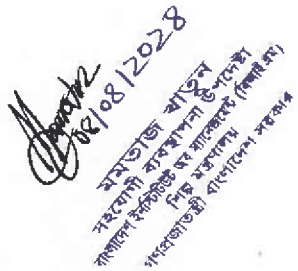 08/08/2028
মমতাজ খাতুন
সহযোগী ব্যবস্থাপনা উপদেষ্টা
বাংলাদেশ ইনস্টিটিউট অব ম্যানেজমেন্ট (বিআইএম)
শিল্প মন্ত্রণালয়
গণপ্রজাতন্ত্রী বাংলাদেশ সরকার